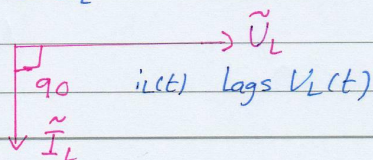 Ũ_L
90 i_L(t) lags V_L(t)
Ĩ_L